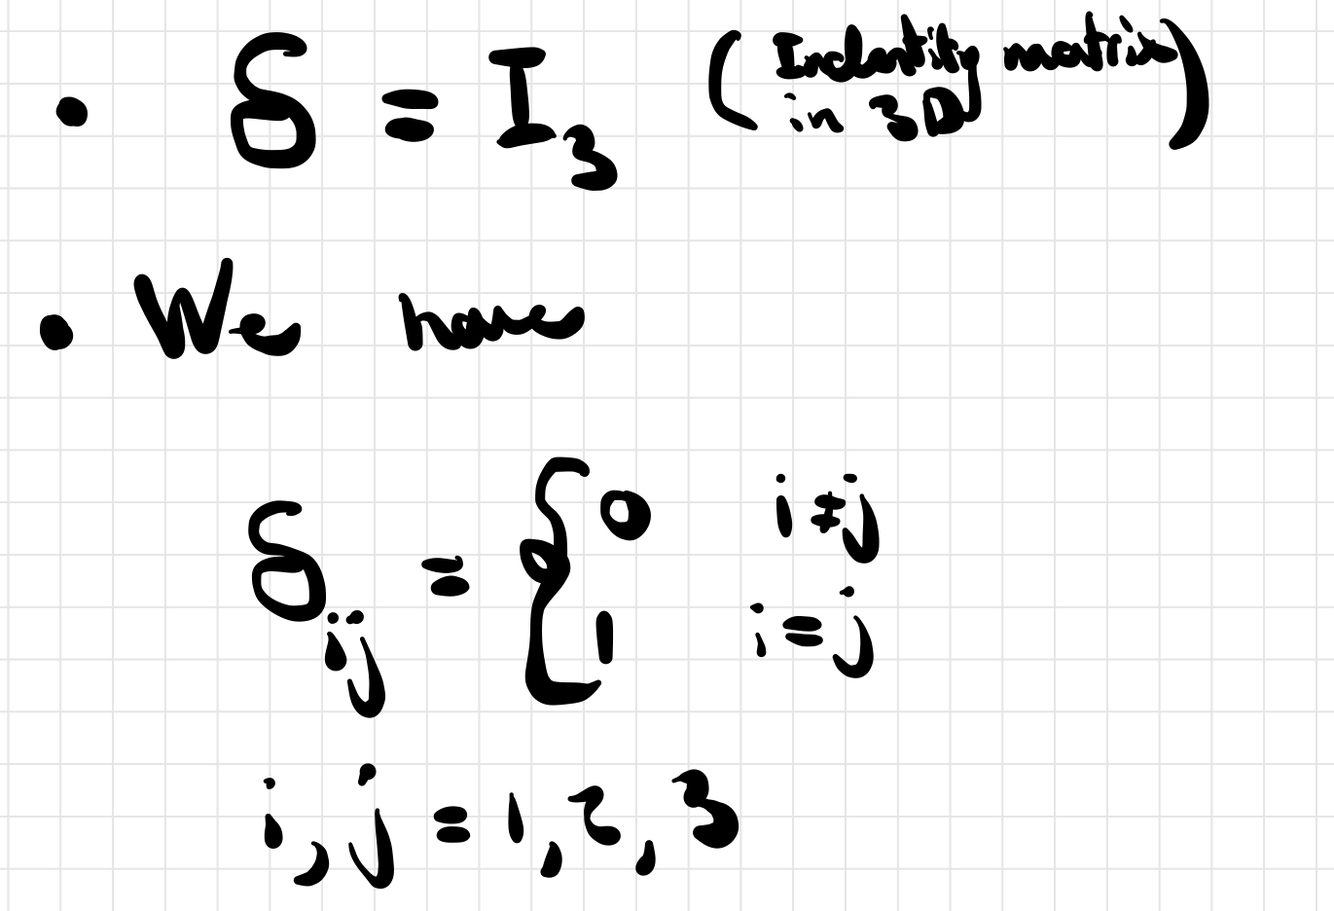 • δ = I₃ (Indentity matrix
in 3D)
• We have
δᵢⱼ = { 0 i ≠ j
1 i = j
i, j = 1, 2, 3